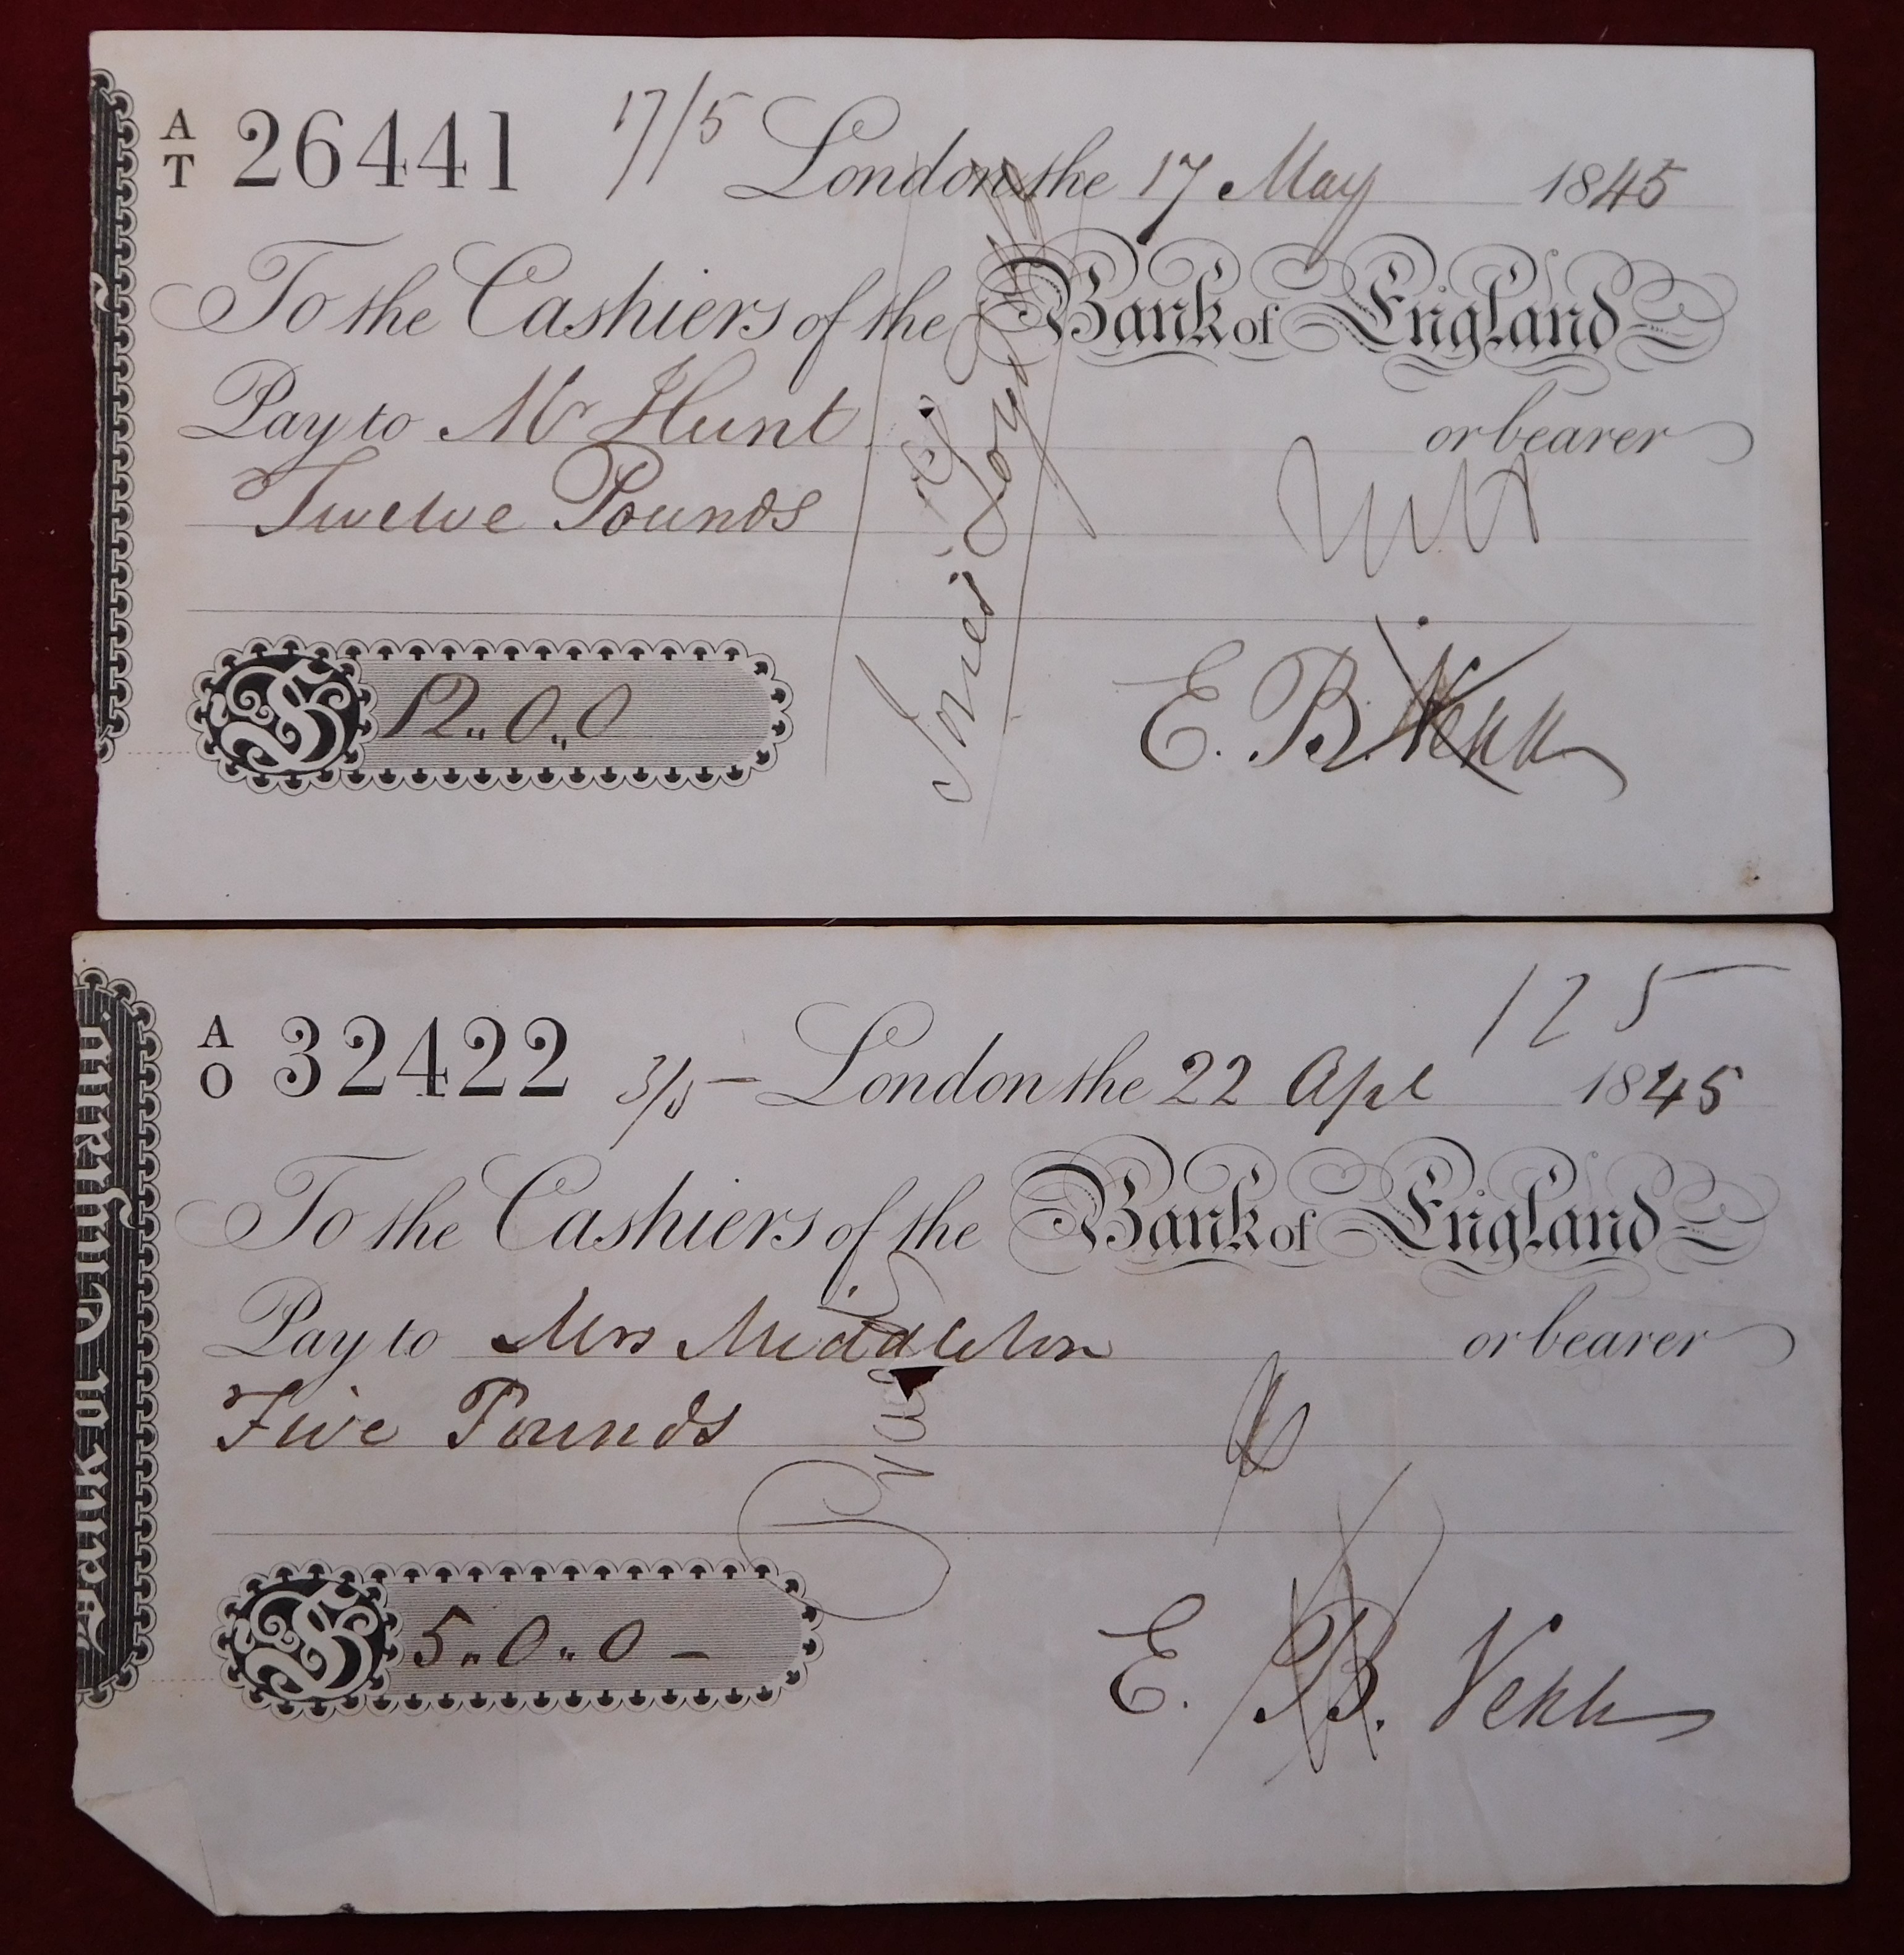 A
T
26441 17/5 London the 17 May 1845
To the Cashiers of the Bank of England
Pay to Mr Hunt or bearer
Twelve Pounds
Jones Loyd
£ 12..0..0
E. B.
A
O
32422 3/5 London the 22 Apl 1845
125
To the Cashiers of the Bank of England
Pay to Mrs Middleton or bearer
Five Pounds
£ 5..0..0
E. B.
Bank of England.